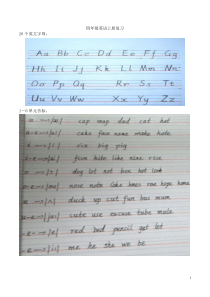 四年级英语上册练习
26个英文字母:
Aa Bb Cc Dd Ee Ff Gg
Hh Ii Jj Kk Ll Mm Nn
Oo Pp Qq Rr Ss Tt
Uu Vv Ww Xx Yy Zz
1-6单元音标:
cap map dad cat hat
a-e cake face name make hate
six big pig
i-e five kite like nine rice
dog lot not box hot look
nose note coke rope home
duck up cut fun bus mum
cute use excuse tube mule
red bed pencil get let
me he she we be
1